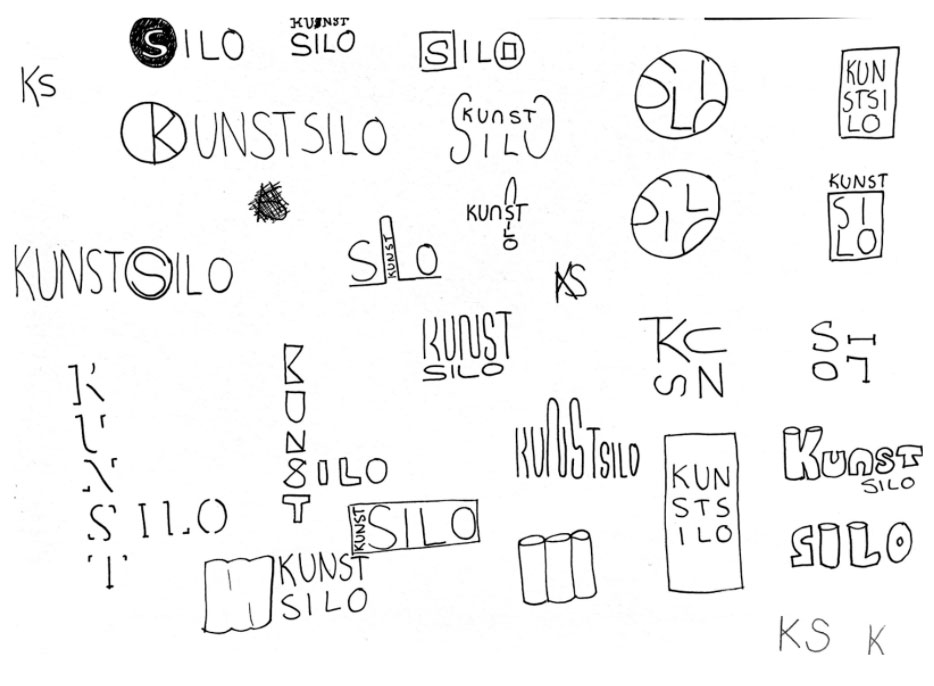 SILO
KUNST
SILO
SILO
SILO
KUN
STSI
LO
Ks
KUNSTSILO
KUNST
SILO
KUNST
SILO
SILO
KUNST
SILO
K
KUNST
ILO
KUNSTSILO
SILO
KUNST
KS
KUNST
SILO
KU
SN
SI
OL
K
U
N
SILO
T
K
U
N
SILO
T
KUNSTSILO
KUN
STS
ILO
KUNST
SILO
KUNST
SILO
KUNST
SILO
SILO
KS
K